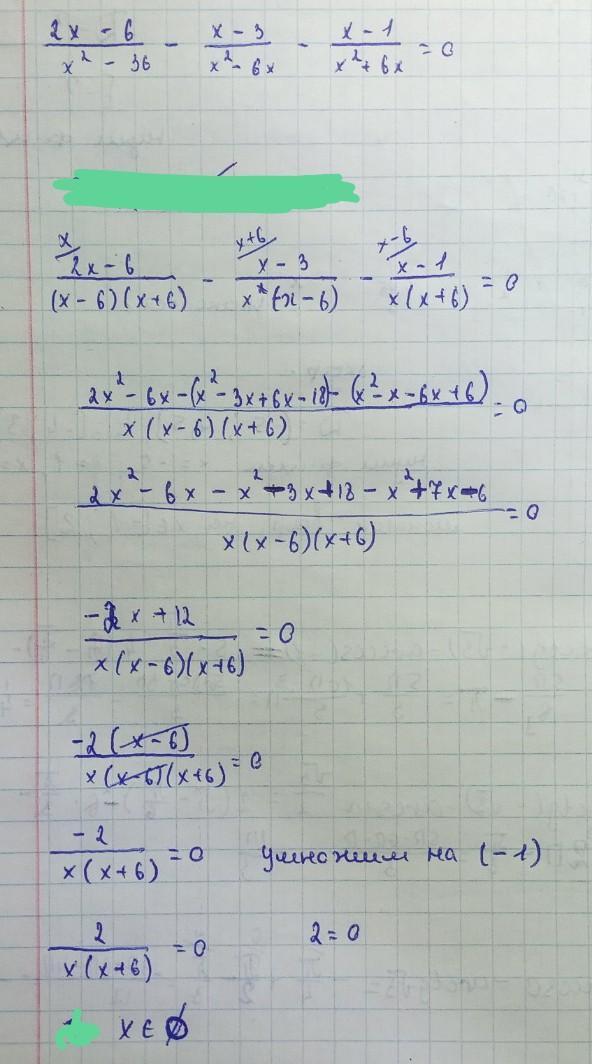 (2x - 6)/(x² - 36) - (x - 3)/(x² - 6x) - (x - 1)/(x² + 6x) = 0
x/ x+6/ x-6/
(2x - 6)/((x - 6)(x + 6)) - (x - 3)/(x(x - 6)) - (x - 1)/(x(x + 6)) = 0
(2x² - 6x - (x² - 3x + 6x - 18) - (x² - x - 6x + 6))/(x(x - 6)(x + 6)) = 0
(2x² - 6x - x² - 3x + 18 - x² + 7x - 6)/(x(x - 6)(x + 6)) = 0
(-2x + 12)/(x(x - 6)(x + 6)) = 0
(-2(x - 6))/(x(x - 6)(x + 6)) = 0
(-2)/(x(x + 6)) = 0 умножим на (-1)
2/(x(x + 6)) = 0 2 = 0
x ∈ ∅